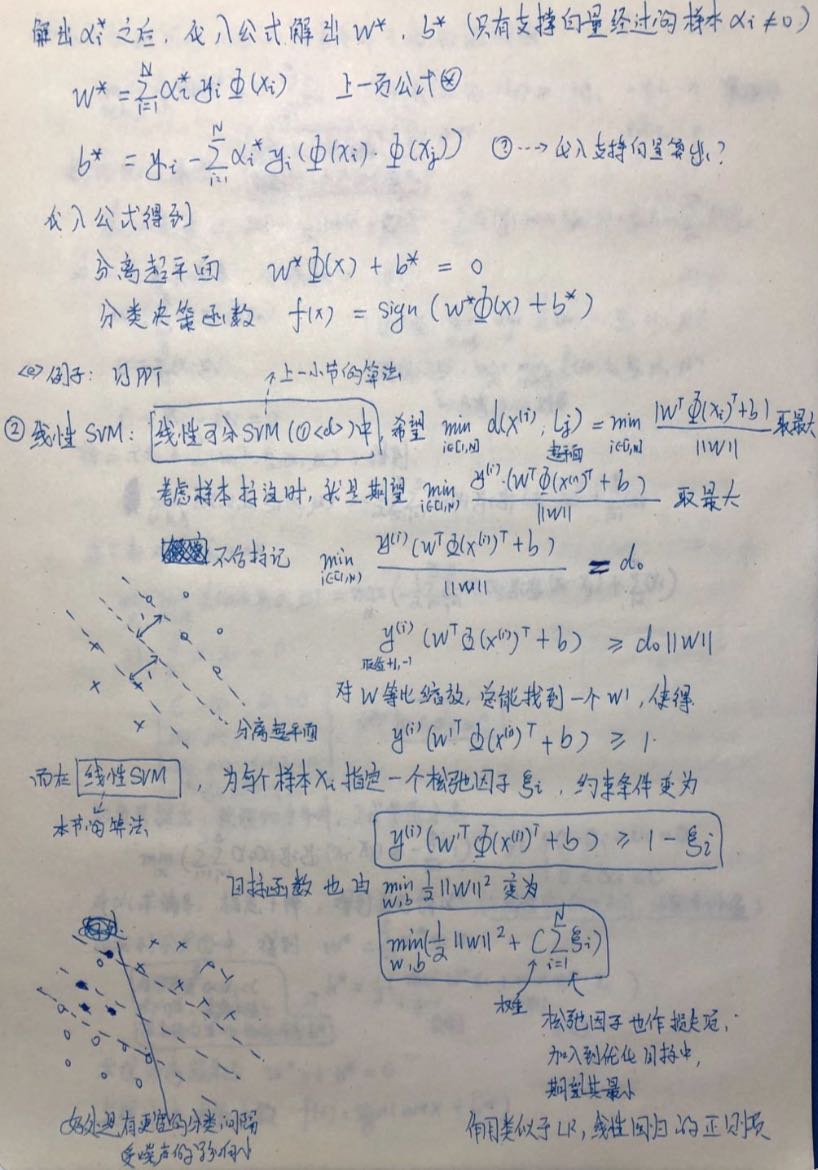 解出 αi* 之后，代入公式解出 w*、b* (只有支撑向量经过的样本 αi ≠ 0)
w* = Σ_{i=1}^{N} αi* yi Φ(xi)  上一页公式⊛
b* = yi - Σ_{i=1}^{N} αi* yi (Φ(xi)·Φ(xj))  ③ ⋯→ 代入支持向量算出?
代入公式得到
分离超平面  w*Φ(x) + b* = 0
分类决策函数  f(x) = sign (w*Φ(x) + b*)
<e> 例子:
上一小节的算法
② 线性 SVM: 线性可分SVM (①<d>)中, 希望 min_{i∈[1,N]} d(x^(i), Lj) = min_{i∈[1,N]} |w^T Φ(xi)^T + b| / ||w|| 取最大
超平面
考虑样本标注时, 就是期望 min_{i∈[1,N]} y^(i)·(w^T Φ(x^(i))^T + b) / ||w|| 取最大
不妨标记  min_{i∈[1,N]} y^(i) (w^T Φ(x^(i))^T + b) / ||w|| = d₀
y^(i) (w^T Φ(x^(i))^T + b) ≥ d₀||w||
取值+1,-1
对 w 等比缩放, 总能找到一个 w', 使得
分离超平面
y^(i) (w'^T Φ(x^(i))^T + b) ≥ 1
而在 线性SVM , 为每个样本 xi 指定一个松弛因子 ξi , 约束条件变为
本节的算法
y^(i) (w'^T Φ(x^(i))^T + b) ≥ 1 - ξi
目标函数也由 min_{w,b} ½||w||² 变为
min_{w,b} (½||w||² + C Σ_{i=1}^{N} ξi)
权重
松弛因子也作损失项,
加入到优化目标中,
期望其最小
好处是有更宽的分类间隔
受噪声的影响小
作用类似于 LR, 线性回归的正则项